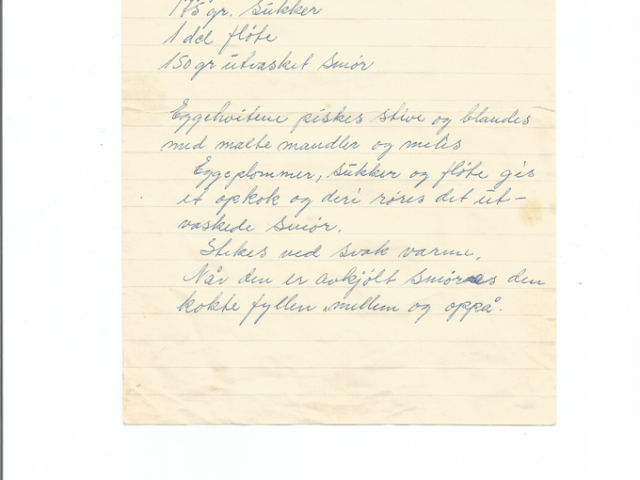 175 gr. sukker
1 del flöte
150 gr utvasket smör
Eggehvitene piskes stive og blandes
med malte mandler og melis
Eggeplommer, sukker og flöte gis
et opkok og deri röres det ut-
vaskede smör.
Stekes ved svak varme.
Når den er avkjölt smöres den
kokte fyllen mellem og oppå.